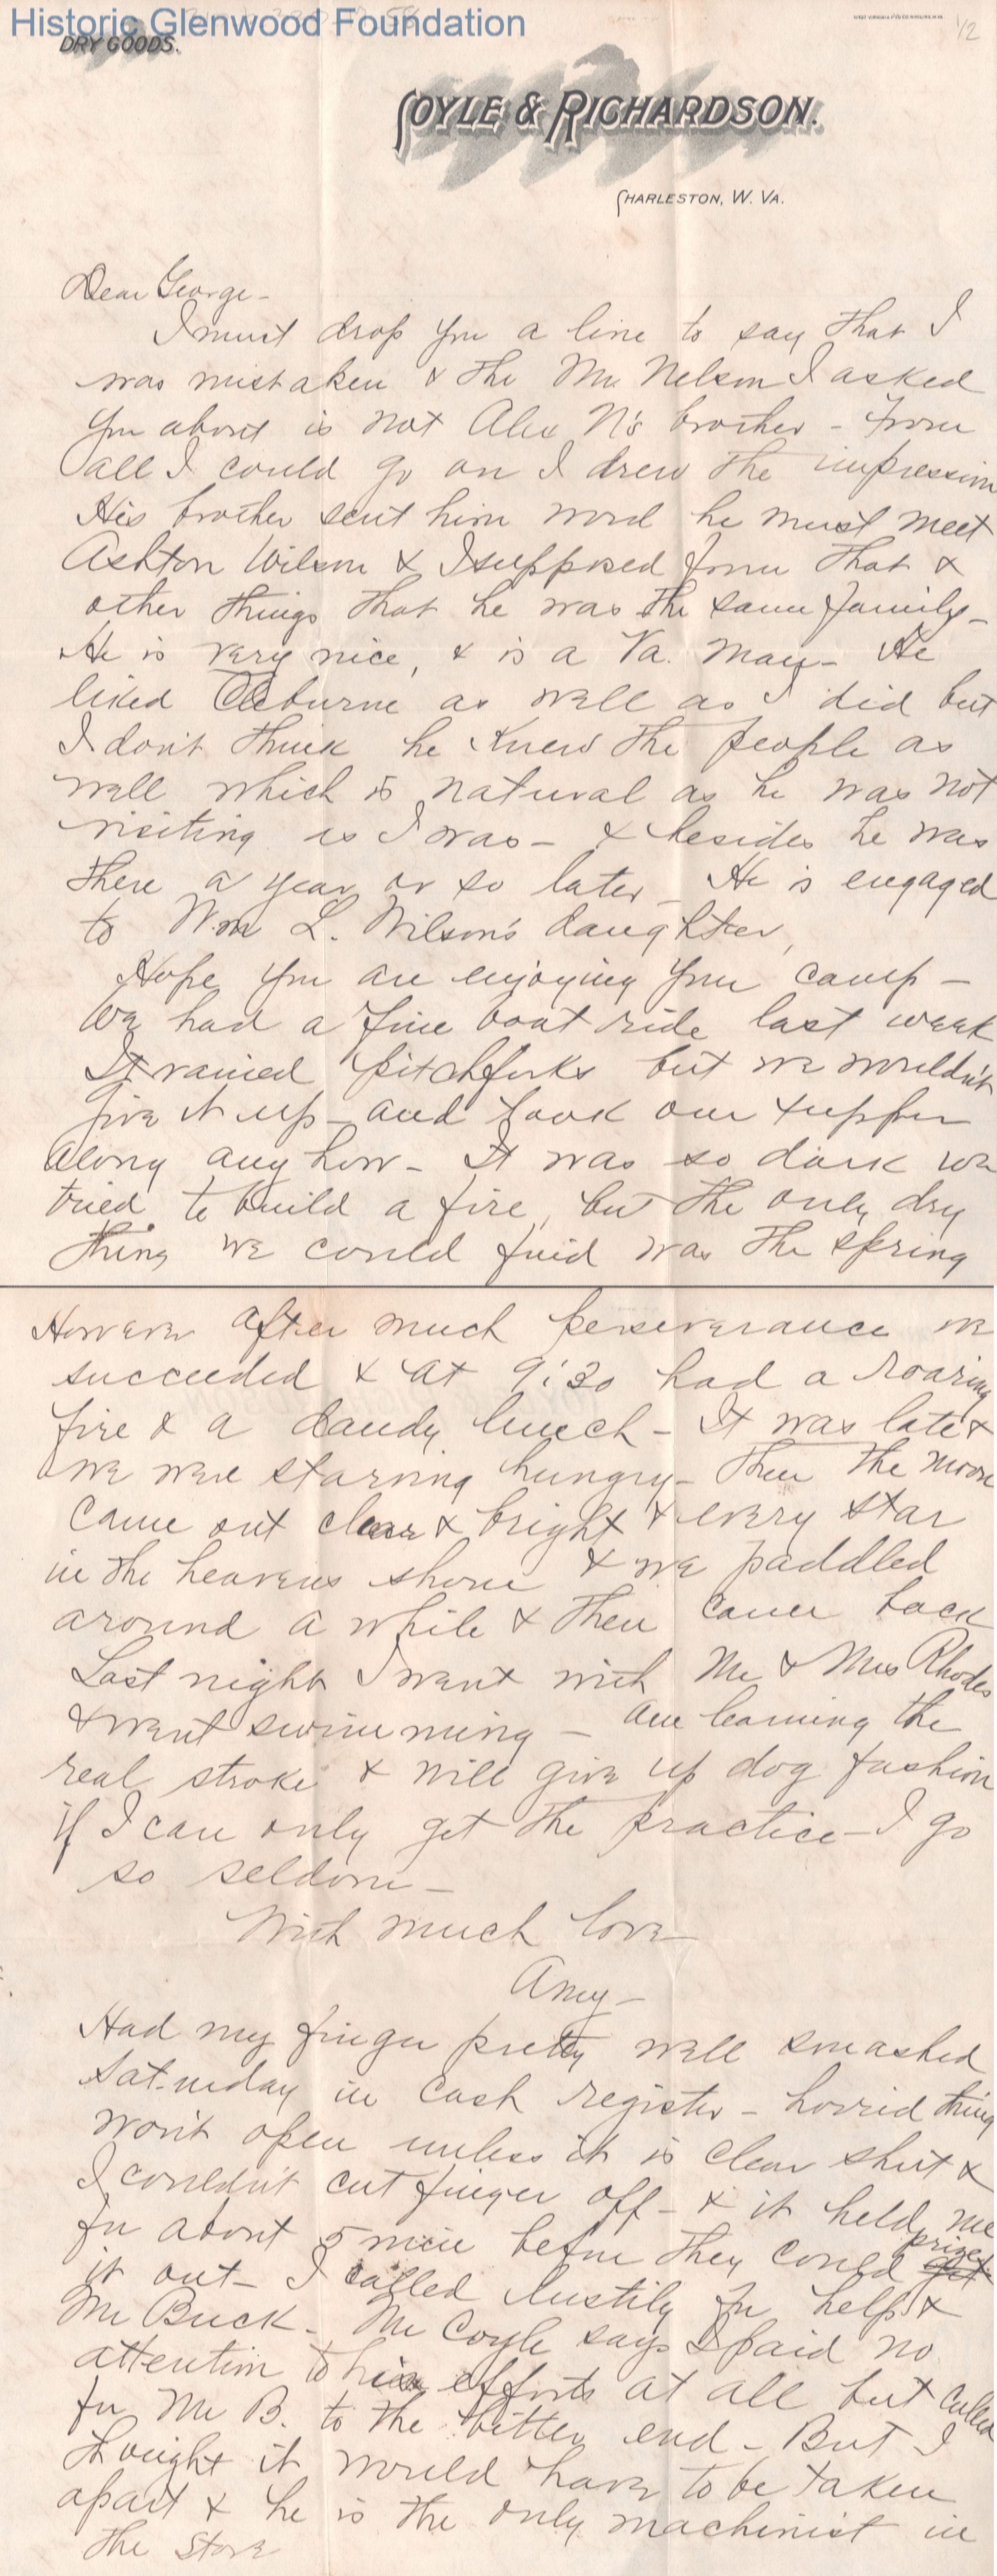 Historic Glenwood Foundation
DRY GOODS.
1/2
COYLE & RICHARDSON.
CHARLESTON, W. VA.
Dear George -
I must drop you a line to say that I
was mistaken & the Mr. Nelson I asked
you about is not Alex N's brother - From
all I could go on I drew the impression
His brother sent him word he must meet
Ashton Wilson & I supposed from that &
other things that he was the same family -
He is very nice, & is a Va. man - He
liked Cleburne as well as I did but
I don't think he knew the people as
well which is natural as he was not
visiting as I was - & besides he was
there a year or so later - He is engaged
to Wm L. Wilson's daughter,
Hope you are enjoying your camp -
We had a fine boat ride last week
It rained pitchforks but we wouldn't
give it up - and took our supper
along any how - It was so dark we
tried to build a fire, but the only dry
thing we could find was the spring
However after much perseverance we
succeeded & at 9:30 had a roaring
fire & a dandy lunch - It was late &
we were starving hungry - Then the moon
came out clear & bright & every star
in the heavens shone & we paddled
around a while & then came back
Last night I went with Mr & Mrs Rhodes
& went swimming - am learning the
real stroke & will give up dog fashion
if I can only get the practice - I go
so seldom -
With much love
Amy -
Had my finger pretty well smashed
Saturday in cash register - horrid thing
won't open unless it is clear shut &
I couldn't cut finger off - & it held me
for about 5 min before they could get prize
it out - I called lustily for help &
Mr Buck - Mr Coyle says I paid no
attention to his efforts at all but called
for Mr B. to the bitter end - But I
thought it would have to be taken
apart & he is the only machinist in
the store